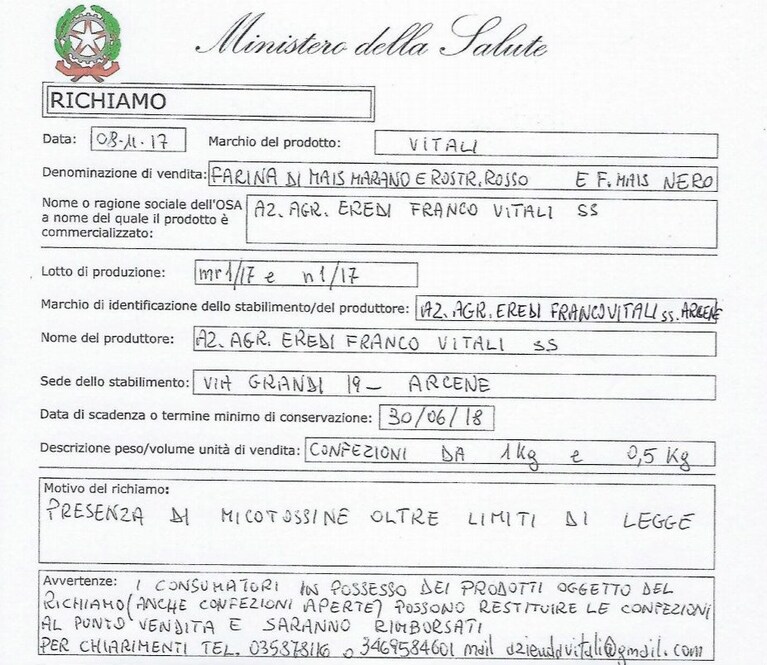 Ministero della Salute
RICHIAMO
Data: 08-11-17 Marchio del prodotto: VITALI
Denominazione di vendita: FARINA DI MAIS MARANO E ROSTR. ROSSO E F. MAIS NERO
Nome o ragione sociale dell'OSA
a nome del quale il prodotto è
commercializzato: AZ. AGR. EREDI FRANCO VITALI SS
Lotto di produzione: mr1/17 e n1/17
Marchio di identificazione dello stabilimento/del produttore: AZ. AGR. EREDI FRANCO VITALI ss. ARCENE
Nome del produttore: AZ. AGR. EREDI FRANCO VITALI SS
Sede dello stabilimento: VIA GRANDI 19 - ARCENE
Data di scadenza o termine minimo di conservazione: 30/06/18
Descrizione peso/volume unità di vendita: CONFEZIONI DA 1 Kg e 0,5 Kg
Motivo del richiamo:
PRESENZA DI MICOTOSSINE OLTRE LIMITI DI LEGGE
Avvertenze: I CONSUMATORI IN POSSESSO DEI PRODOTTI OGGETTO DEL
RICHIAMO (ANCHE CONFEZIONI APERTE) POSSONO RESTITUIRE LE CONFEZIONI
AL PUNTO VENDITA E SARANNO RIMBORSATI
PER CHIARIMENTI TEL. 035878116 o 3469584601 mail aziendavitali@gmail.com